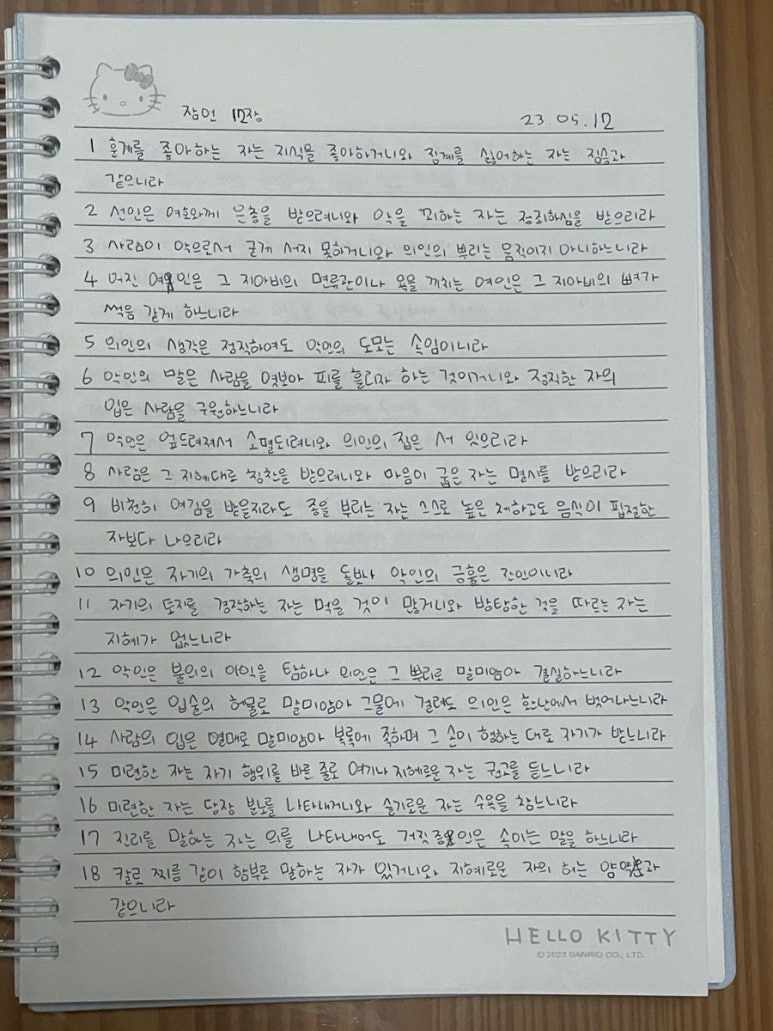 잠언 12장 23.05.12
1 훈계를 좋아하는 자는 지식을 좋아하거니와 징계를 싫어하는 자는 짐승과
같으니라
2 선인은 여호와께 은총을 받으려니와 악을 꾀하는 자는 정죄하심을 받으리라
3 사람이 악으로서 굳게 서지 못하거니와 의인의 뿌리는 움직이지 아니하느니라
4 어진 여인은 그 지아비의 면류관이나 욕을 끼치는 여인은 그 지아비의 뼈가
썩음 같게 하느니라
5 의인의 생각은 정직하여도 악인의 도모는 속임이니라
6 악인의 말은 사람을 엿보아 피를 흘리자 하는 것이거니와 정직한 자의
입은 사람을 구원하느니라
7 악인은 엎드러져서 소멸되려니와 의인의 집은 서 있으리라
8 사람은 그 지혜대로 칭찬을 받으려니와 마음이 굽은 자는 멸시를 받으리라
9 비천히 여김을 받을지라도 종을 부리는 자는 스스로 높은 체하고도 음식이 핍절한
자보다 나으리라
10 의인은 자기의 가축의 생명을 돌보나 악인의 긍휼은 잔인이니라
11 자기의 토지를 경작하는 자는 먹을 것이 많거니와 방탕한 것을 따르는 자는
지혜가 없느니라
12 악인은 불의의 이익을 탐하나 의인은 그 뿌리로 말미암아 결실하느니라
13 악인은 입술의 허물로 말미암아 그물에 걸려도 의인은 환난에서 벗어나느니라
14 사람의 입은 열매로 말미암아 복록에 족하며 그 손이 행하는 대로 자기가 받느니라
15 미련한 자는 자기 행위를 바른 줄로 여기나 지혜로운 자는 권고를 듣느니라
16 미련한 자는 당장 분노를 나타내거니와 슬기로운 자는 수욕을 참느니라
17 진리를 말하는 자는 의를 나타내어도 거짓 증인은 속이는 말을 하느니라
18 칼로 찌름 같이 함부로 말하는 자가 있거니와 지혜로운 자의 혀는 양약과
같으니라
HELLO KITTY
©2023 SANRIO CO., LTD.